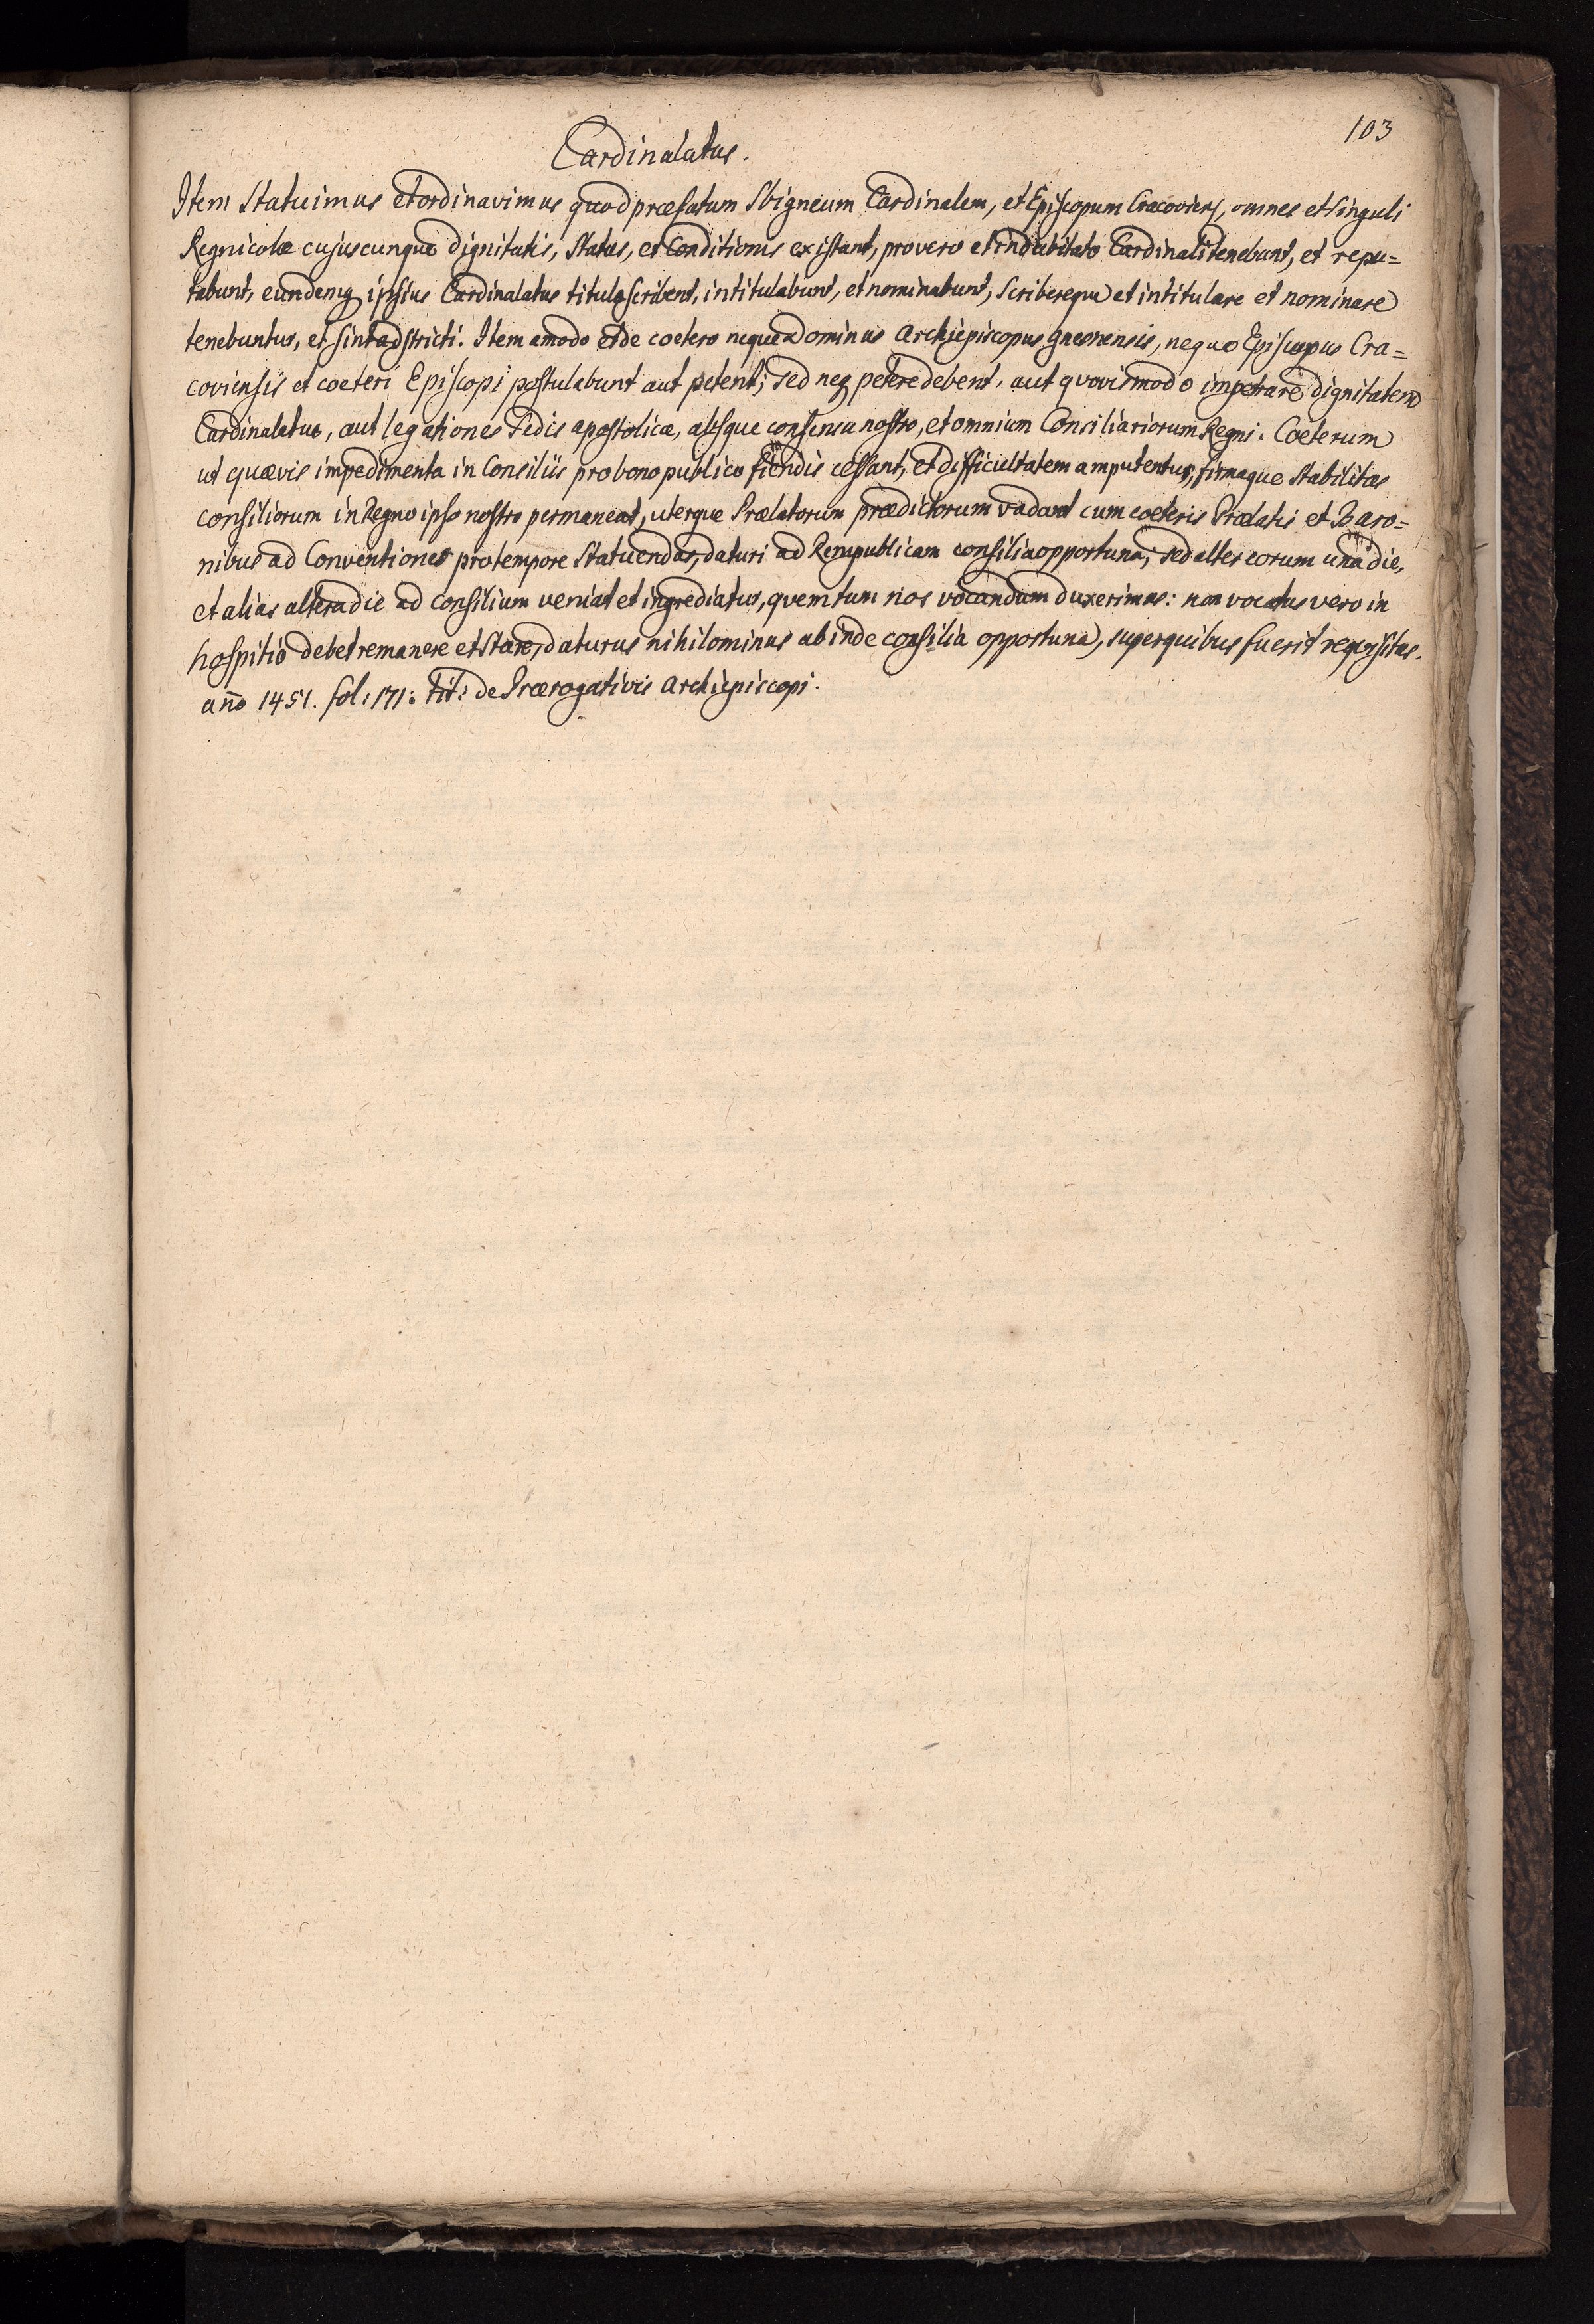 103
Cardinalatus.
Item Statuimus et ordinavimus quod præfatum Sbigneum Cardinalem, et Episcopum Cracoviens, omnes et singuli
Regnicolæ cujuscunque dignitatis, status, et Conditionis existant, pro vero et indubitato Cardinali tenebunt, et repu=
tabunt, eundemq ipsius Cardinalatus titulo scribent, intitulabunt, et nominabunt, scribereque et intitulare et nominare
tenebuntur, et sint adstricti. Item amodo et de coetero neque Dominus Archiepiscopus Gnesnensis, neque Episcopus Cra=
coviensis et coeteri Episcopi postulabunt aut petent; sed neq petere debent, aut quovismodo impetrare dignitatem
Cardinalatus, aut legationes Sedis apostolicæ, absque consensu nostro, et omnium Consiliariorum Regni. Coeterum
ut quævis impedimenta in Consiliis pro bono publico fiendis cessant, et difficultatem amputentur, firmaque stabilitas
consiliorum in Regno ipso nostro permaneat, uterque Prælatorum prædictorum vadant cum coeteris Prælatis et Baro=
nibus ad Conventiones pro tempore statuendas, daturi ad Rempublicam consilia opportuna; sed alter eorum una die,
et alias altera die ad consilium veniat et ingrediatur, quem tum nos vocandum duxerimus: non vocatus vero in
hospitio debet remanere et stare, daturus nihilominus ab inde consilia opportuna, super quibus fuerit requisitus.
año 1451. fol: 171. tit: de Prærogativis Archiepiscopi.